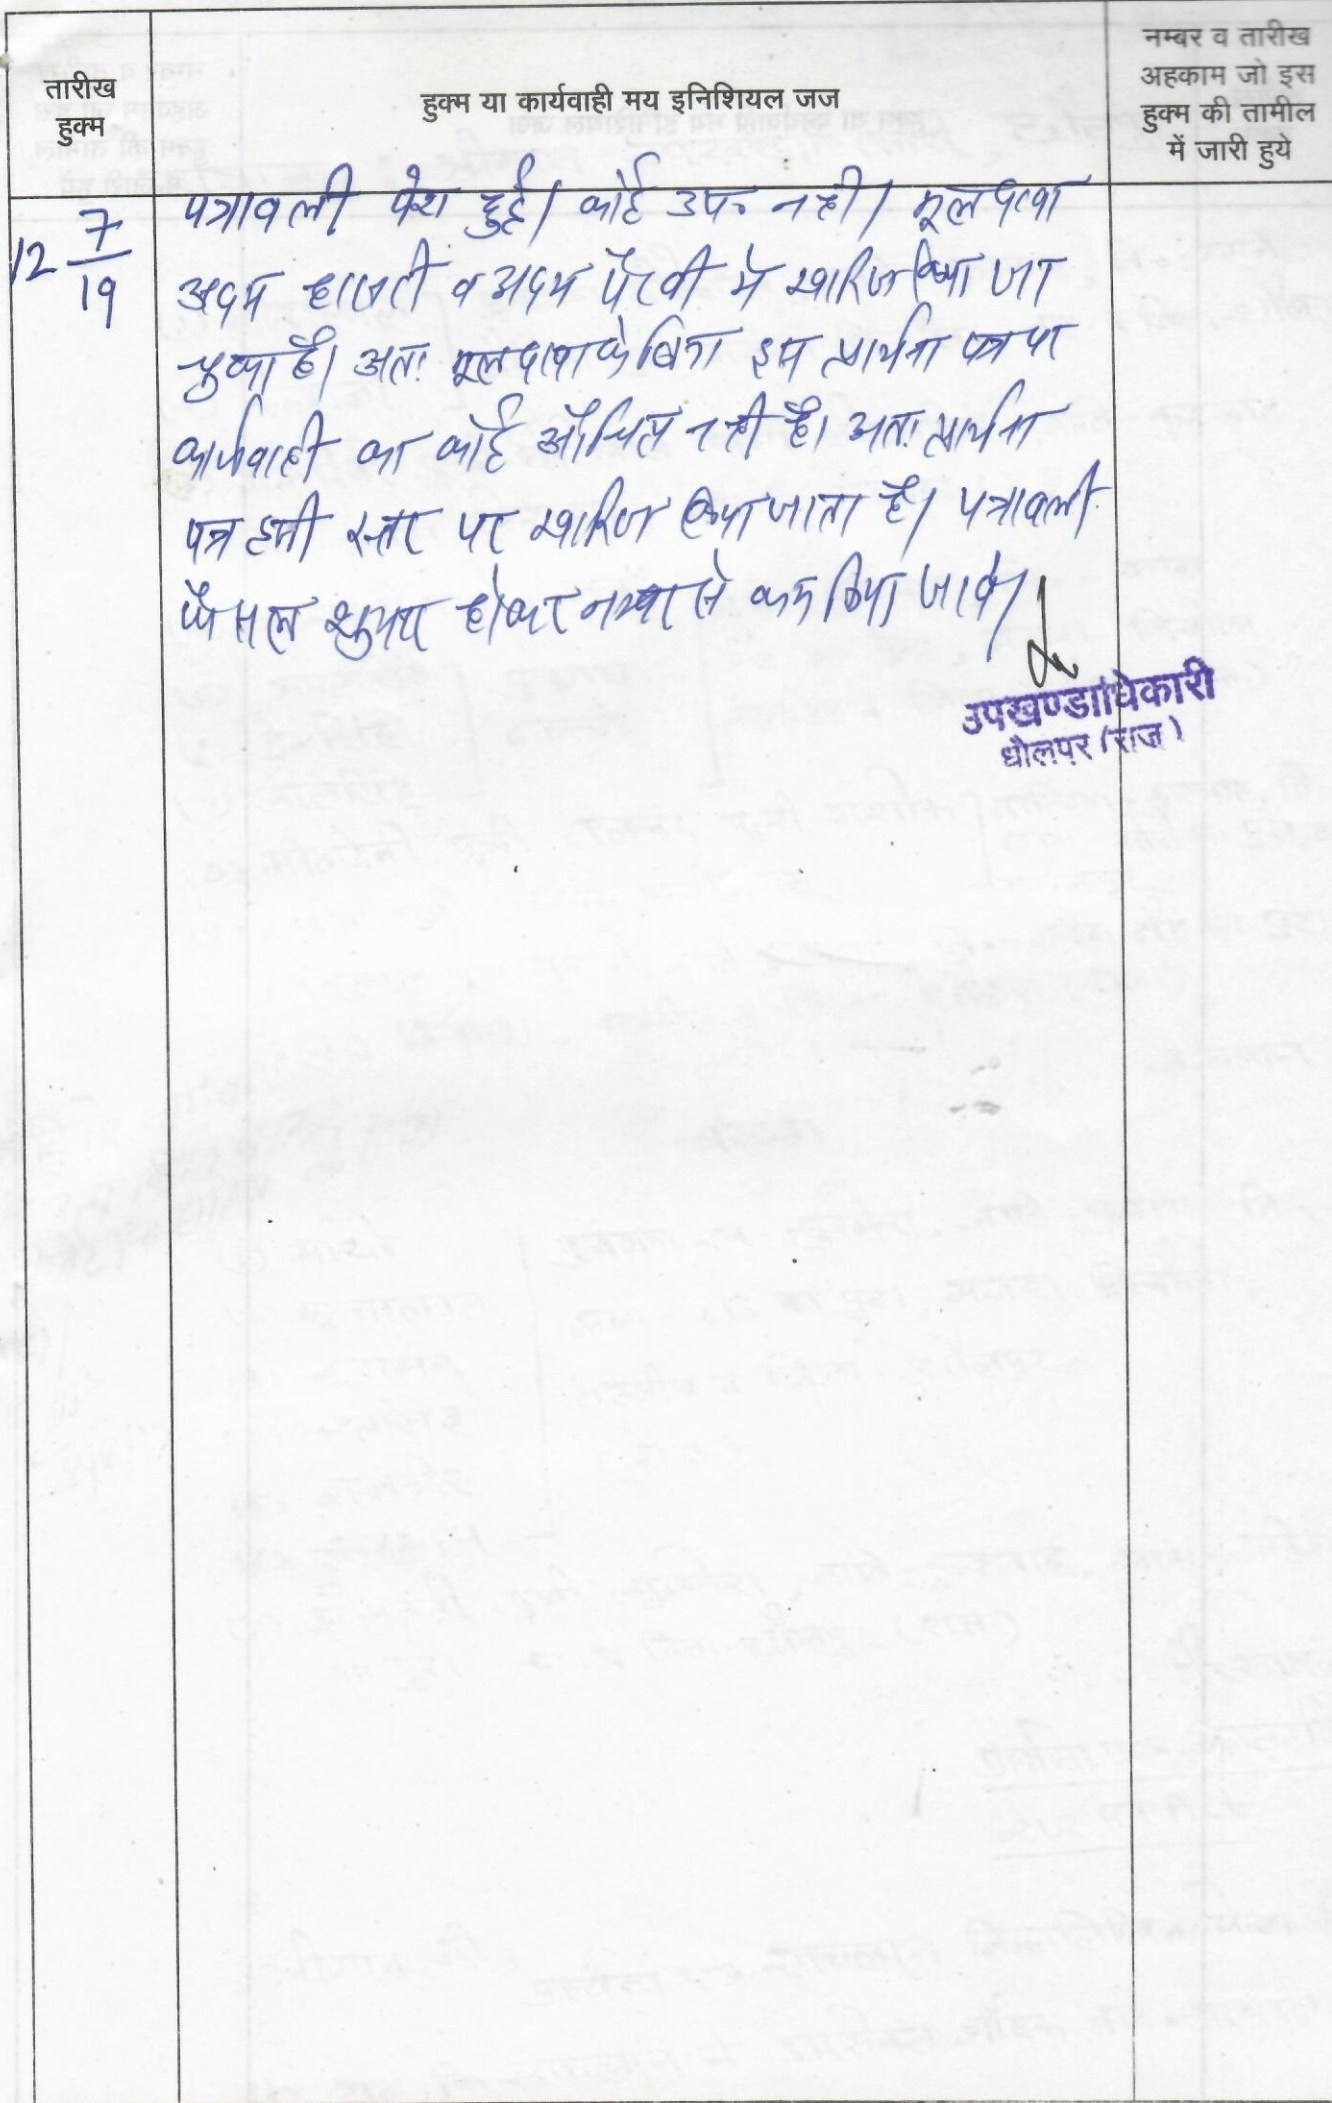 तारीख
हुक्म
हुक्म या कार्यवाही मय इनिशियल जज
नम्बर व तारीख
अहकाम जो इस
हुक्म की तामील
में जारी हुये
12 7/19
पत्रावली पेश हुई। कोई उप० नही। मूल दावा
अदम हाजरी व अदम पैरवी मे खारिज किया जा
चुका है। अतः मूल दावा के बिना इस प्रार्थना पत्र पर
कार्यवाही का कोई औचित्य नही है। अतः प्रार्थना
पत्र इसी स्तर पर खारिज किया जाता है। पत्रावली
फैसल शुमार होकर नम्बर से कम किया जावे।
उपखण्डाधिकारी
धौलपुर (राज)